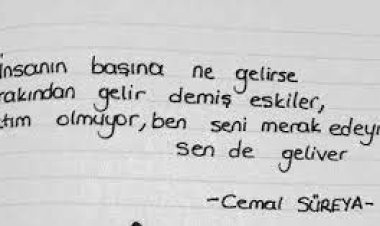 insanın başına ne gelirse
rakından gelir demiş eskiler,
tım olmuyor, ben seni merak edeyi
sen de geliver
-Cemal SÜREYA-